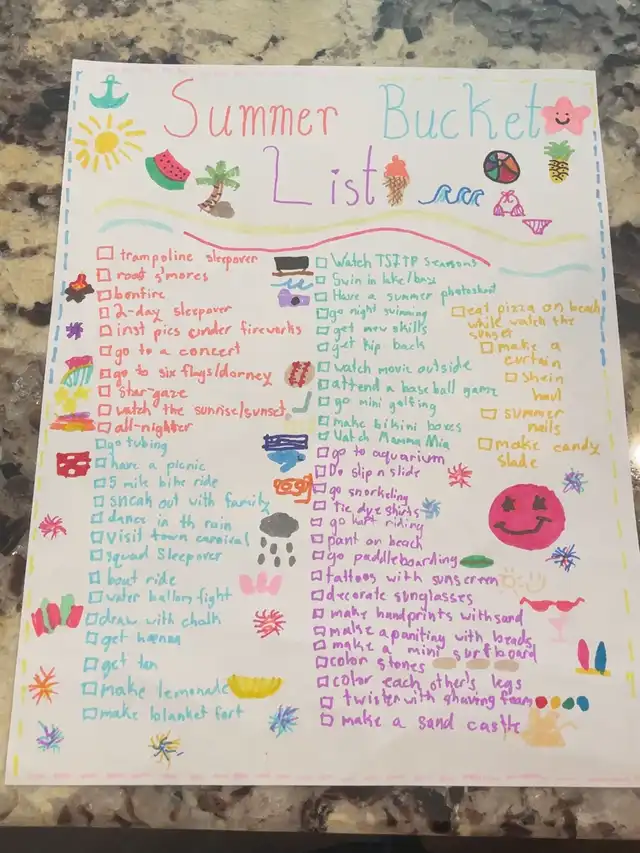 Summer Bucket
List
trampoline sleepover
roast s'mores
bonfire
2-day sleepover
inst pics under fireworks
go to a concert
go to six flags/dorney
star-gaze
watch the sunrise/sunset
all-nighter
go tubing
have a picnic
5 mile bike ride
sneak out with family
dance in th rain
visit town carnival
squad sleepover
boat ride
water balloon fight
draw with chalk
get henna
get tan
make lemonade
make blanket fort
Watch TSITP seasons
Swim in lake/bay
Have a summer photoshoot
go night swimming
get new skills
get kip back
watch movie outside
attend a baseball game
go mini golfing
make bikini boxes
Watch Mamma Mia
go to aquarium
Do slip n slide
go snorkeling
tie dye shirts
go kart riding
paint on beach
go paddleboarding
tattoos with sunscreen
decorate sunglasses
make handprints with sand
make a paniting with beads
make a mini surfboard
color stones
color each other's legs
twister with shaving foam
make a sand castle
eat pizza on beach
while watch the
sunset
make a
curtain
Shein
haul
summer
nails
make candy
slade